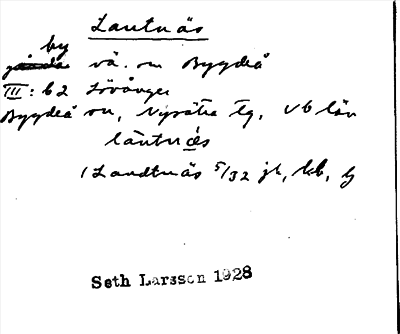 Lantnäs
by
vä. om Bygdeå
III: b2 Lövånger
Bygdeå sn, Nysätra tg, Vb län
lantnäs
Landtnäs 5/32 jk, kb, lj
Seth Larsson 1928